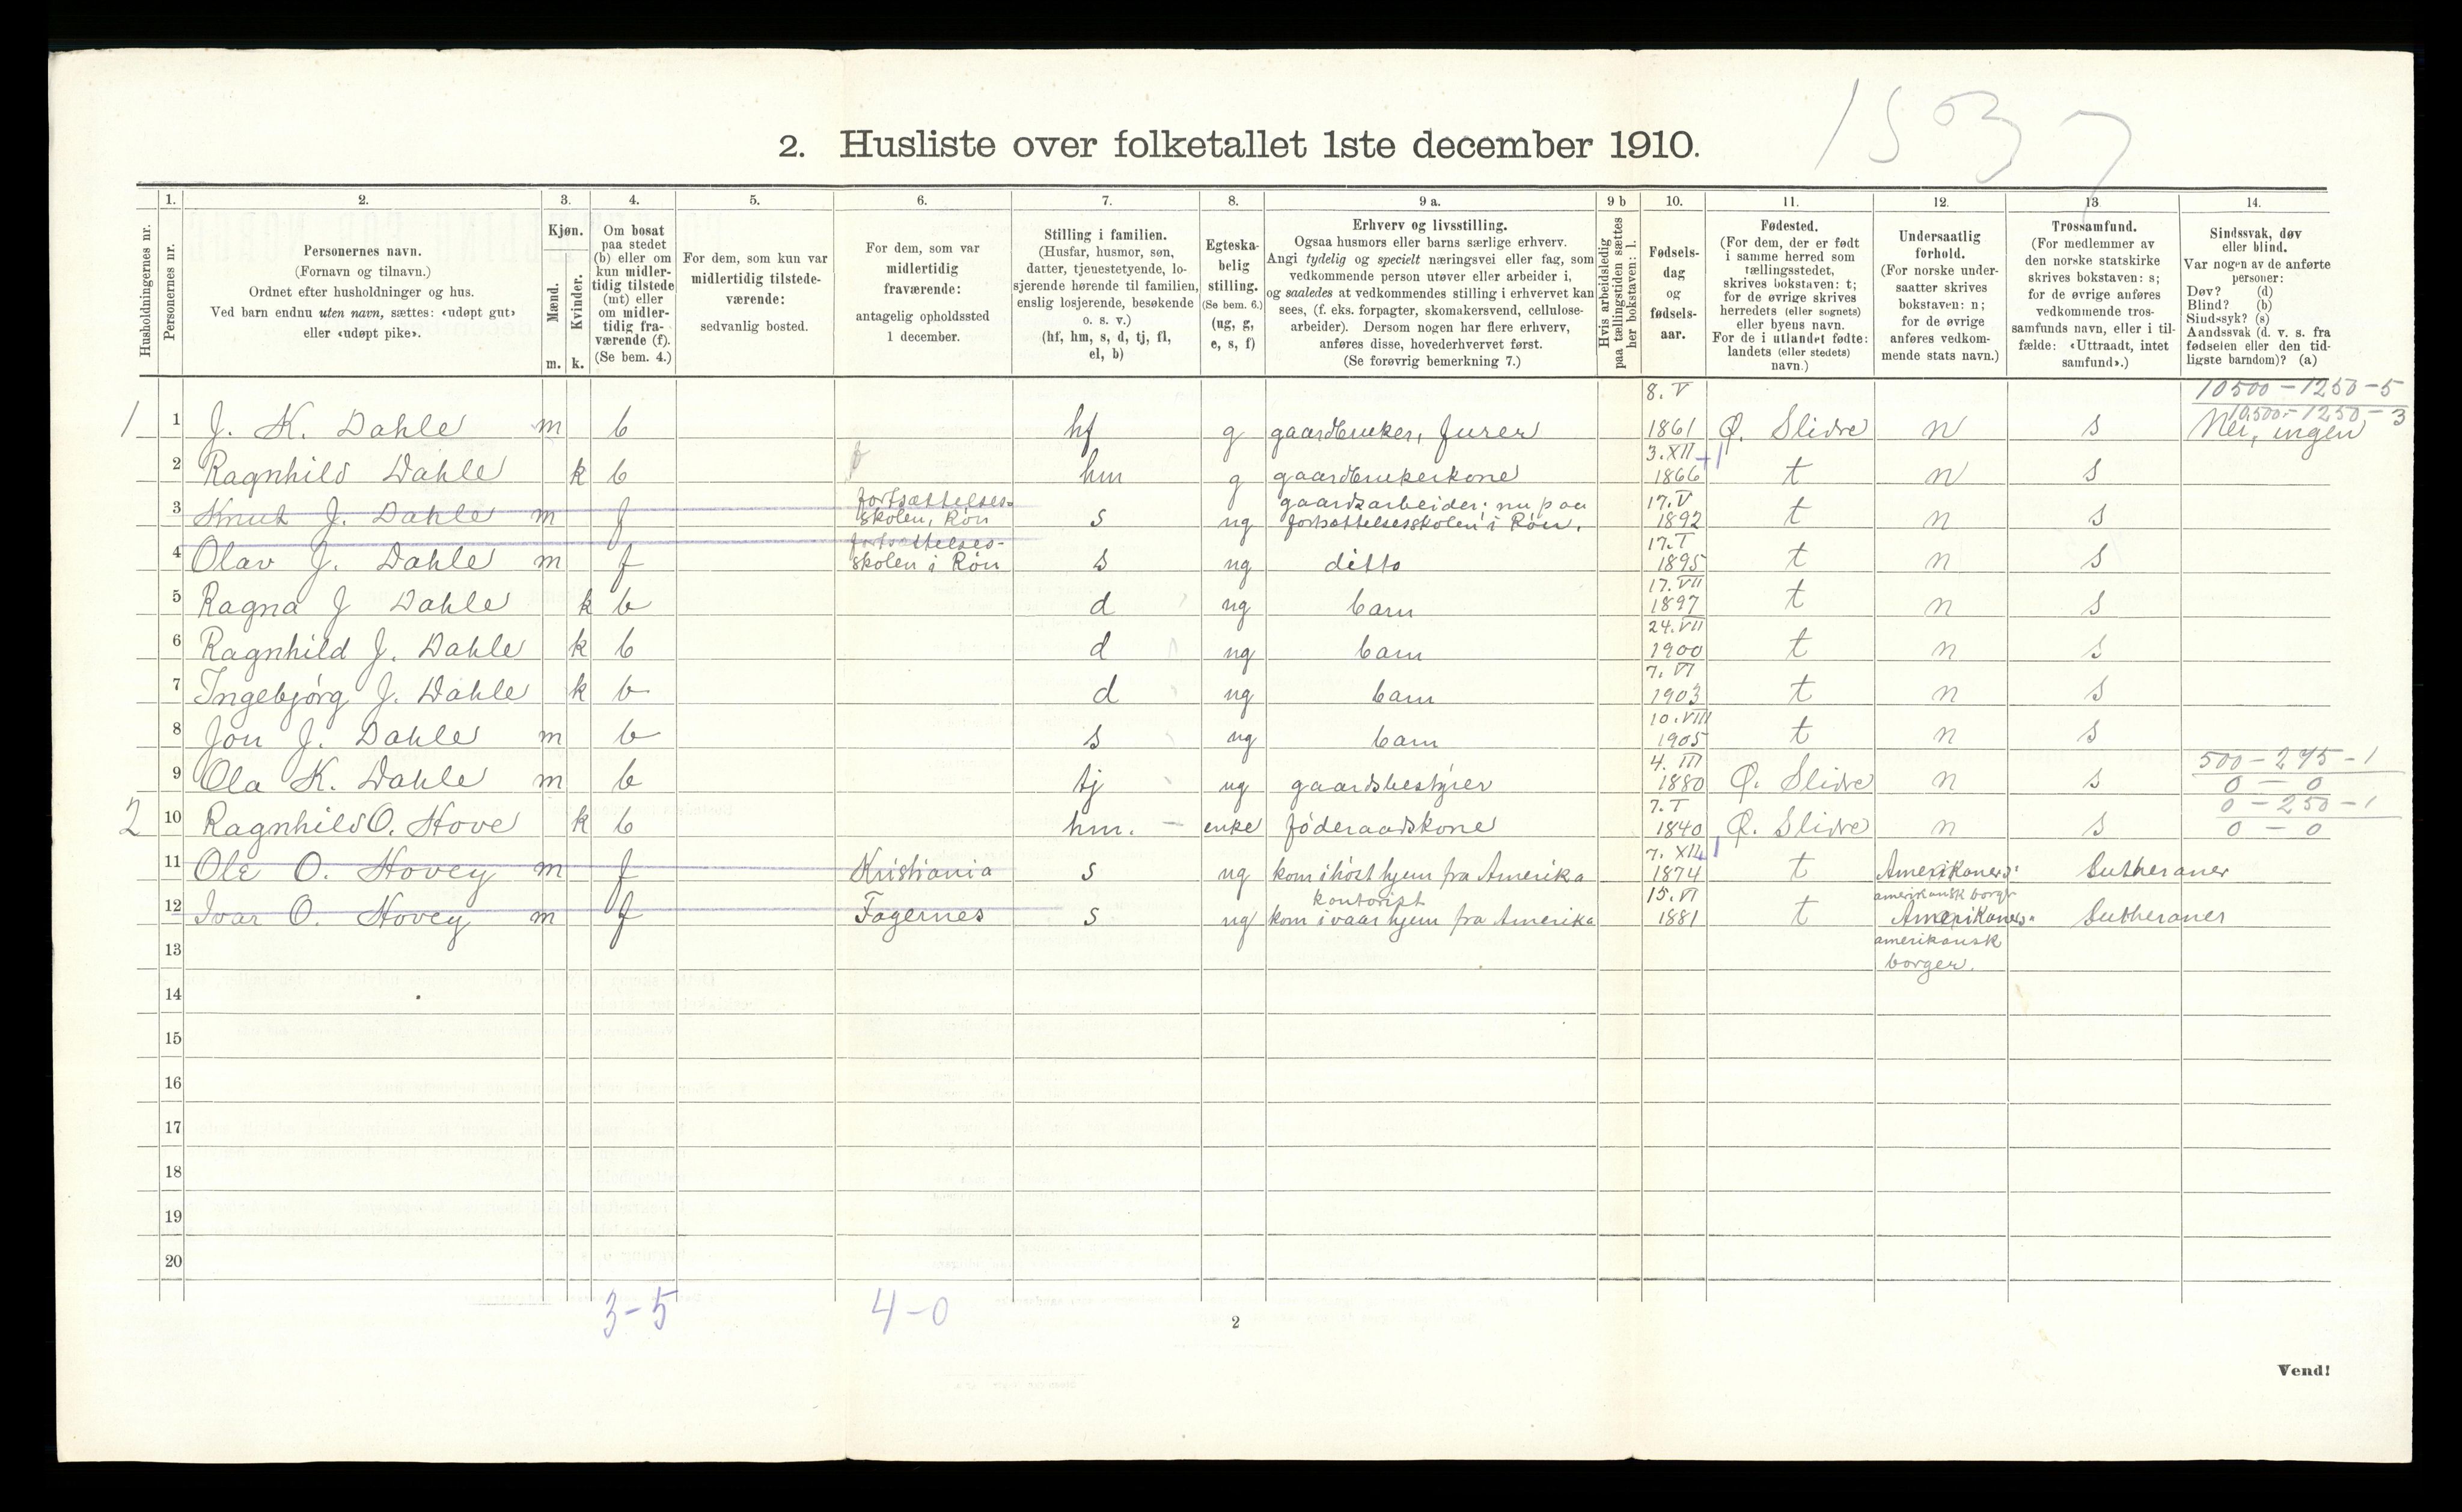 1503 7
2. Husliste over folketallet 1ste december 1910.
Husholdningernes nr.
1. Personernes nr.
2. Personernes navn.
(Fornavn og tilnavn.)
Ordnet efter husholdninger og hus.
Ved barn endnu uten navn, sættes: «udøpt gut»
eller «udøpt pike».
3. Kjøn.
Mænd. m.
Kvinder. k.
4. Om bosat
paa stedet
(b) eller om
kun midler-
tidig tilstede
(mt) eller
om midler-
tidig fra-
værende (f).
(Se bem. 4.)
5. For dem, som kun var
midlertidig tilstede-
værende:
sedvanlig bosted.
6. For dem, som var
midlertidig
fraværende:
antagelig opholdssted
1 december.
7. Stilling i familien.
(Husfar, husmor, søn,
datter, tjenestetyende, lo-
sjerende hørende til familien,
enslig losjerende, besøkende
o. s. v.)
(hf, hm, s, d, tj, fl,
el, b)
8. Egteska-
belig
stilling.
(Se bem. 6.)
(ug, g,
e, s, f)
9 a. Erhverv og livsstilling.
Ogsaa husmors eller barns særlige erhverv.
Angi tydelig og specielt næringsvei eller fag, som
vedkommende person utøver eller arbeider i,
og saaledes at vedkommendes stilling i erhvervet kan
sees, (f. eks. forpagter, skomakersvend, cellulose-
arbeider). Dersom nogen har flere erhverv,
anføres disse, hovederhvervet først.
(Se forøvrig bemerkning 7.)
9 b Hvis arbeidsledig
paa tællingstiden sættes
her bokstaven: l.
10. Fødsels-
dag
og
fødsels-
aar.
11. Fødested.
(For dem, der er født
i samme herred som
tællingsstedet,
skrives bokstaven: t;
for de øvrige skrives
herredets (eller sognets)
eller byens navn.
For de i utlandet fødte:
landets (eller stedets)
navn.)
12. Undersaatlig
forhold.
(For norske under-
saatter skrives
bokstaven: n;
for de øvrige
anføres vedkom-
mende stats navn.)
13. Trossamfund.
(For medlemmer av
den norske statskirke
skrives bokstaven: s;
for de øvrige anføres
vedkommende tros-
samfunds navn, eller i til-
fælde: «Uttraadt, intet
samfund».)
14. Sindssvak, døv
eller blind.
Var nogen av de anførte
personer:
Døv? (d)
Blind? (b)
Sindssyk? (s)
Aandssvak (d. v. s. fra
fødselen eller den tid-
ligste barndom)? (a)
10500 - 1250 - 5
10.500 - 1250 - 3
1 1 J. K. Dahle m b hf g gaardbruker, furer 8. V 1861 Ø. Slidre n s Nei, ingen
2 Ragnhild Dahle k b hm g gaardbrukerkone 3. XII 1866 t n s
3 Knut J. Dahle m f fortsættelses-
skolen, Røn s ug gaardsarbeider; nu paa
fortsættelsesskolen i Røn. 17. V 1892 t n s
4 Olav J. Dahle m f fortsættelses-
skolen i Røn s ug ditto 17. I 1895 t n s
5 Ragna J Dahle k b d ug barn 17. VII 1897 t n s
6 Ragnhild J. Dahle k b d ug barn 24. VII 1900 t n s
7 Ingebjørg J. Dahle k b d ug barn 7. VI 1903 t n s
8 Jon J. Dahle m b s ug barn 10. VIII 1905 t n s
500 - 275 - 1
9 Ola K. Dahle m b tj ug gaardsbestyrer 4. III 1880 Ø. Slidre n s 0 - 0
0 - 250 - 1
2 10 Ragnhild O. Hove k b hm. - enke føderaadskone 7. I 1840 Ø. Slidre n s 0 - 0
11 Ole O. Hovey m f Kristiania s ug kom i høst hjem fra Amerika 7. XII 1874 t Amerikaner: Lutheraner
amerikansk borger
12 Ivar O. Hovey m f Fagernes s ug kontorist
kom i vaar hjem fra Amerika 15. VI 1881 t Amerikaner: Lutheraner
amerikansk
borger.
13
14
15
16
17
18
19
20
3-5 4-0
2
Vend!